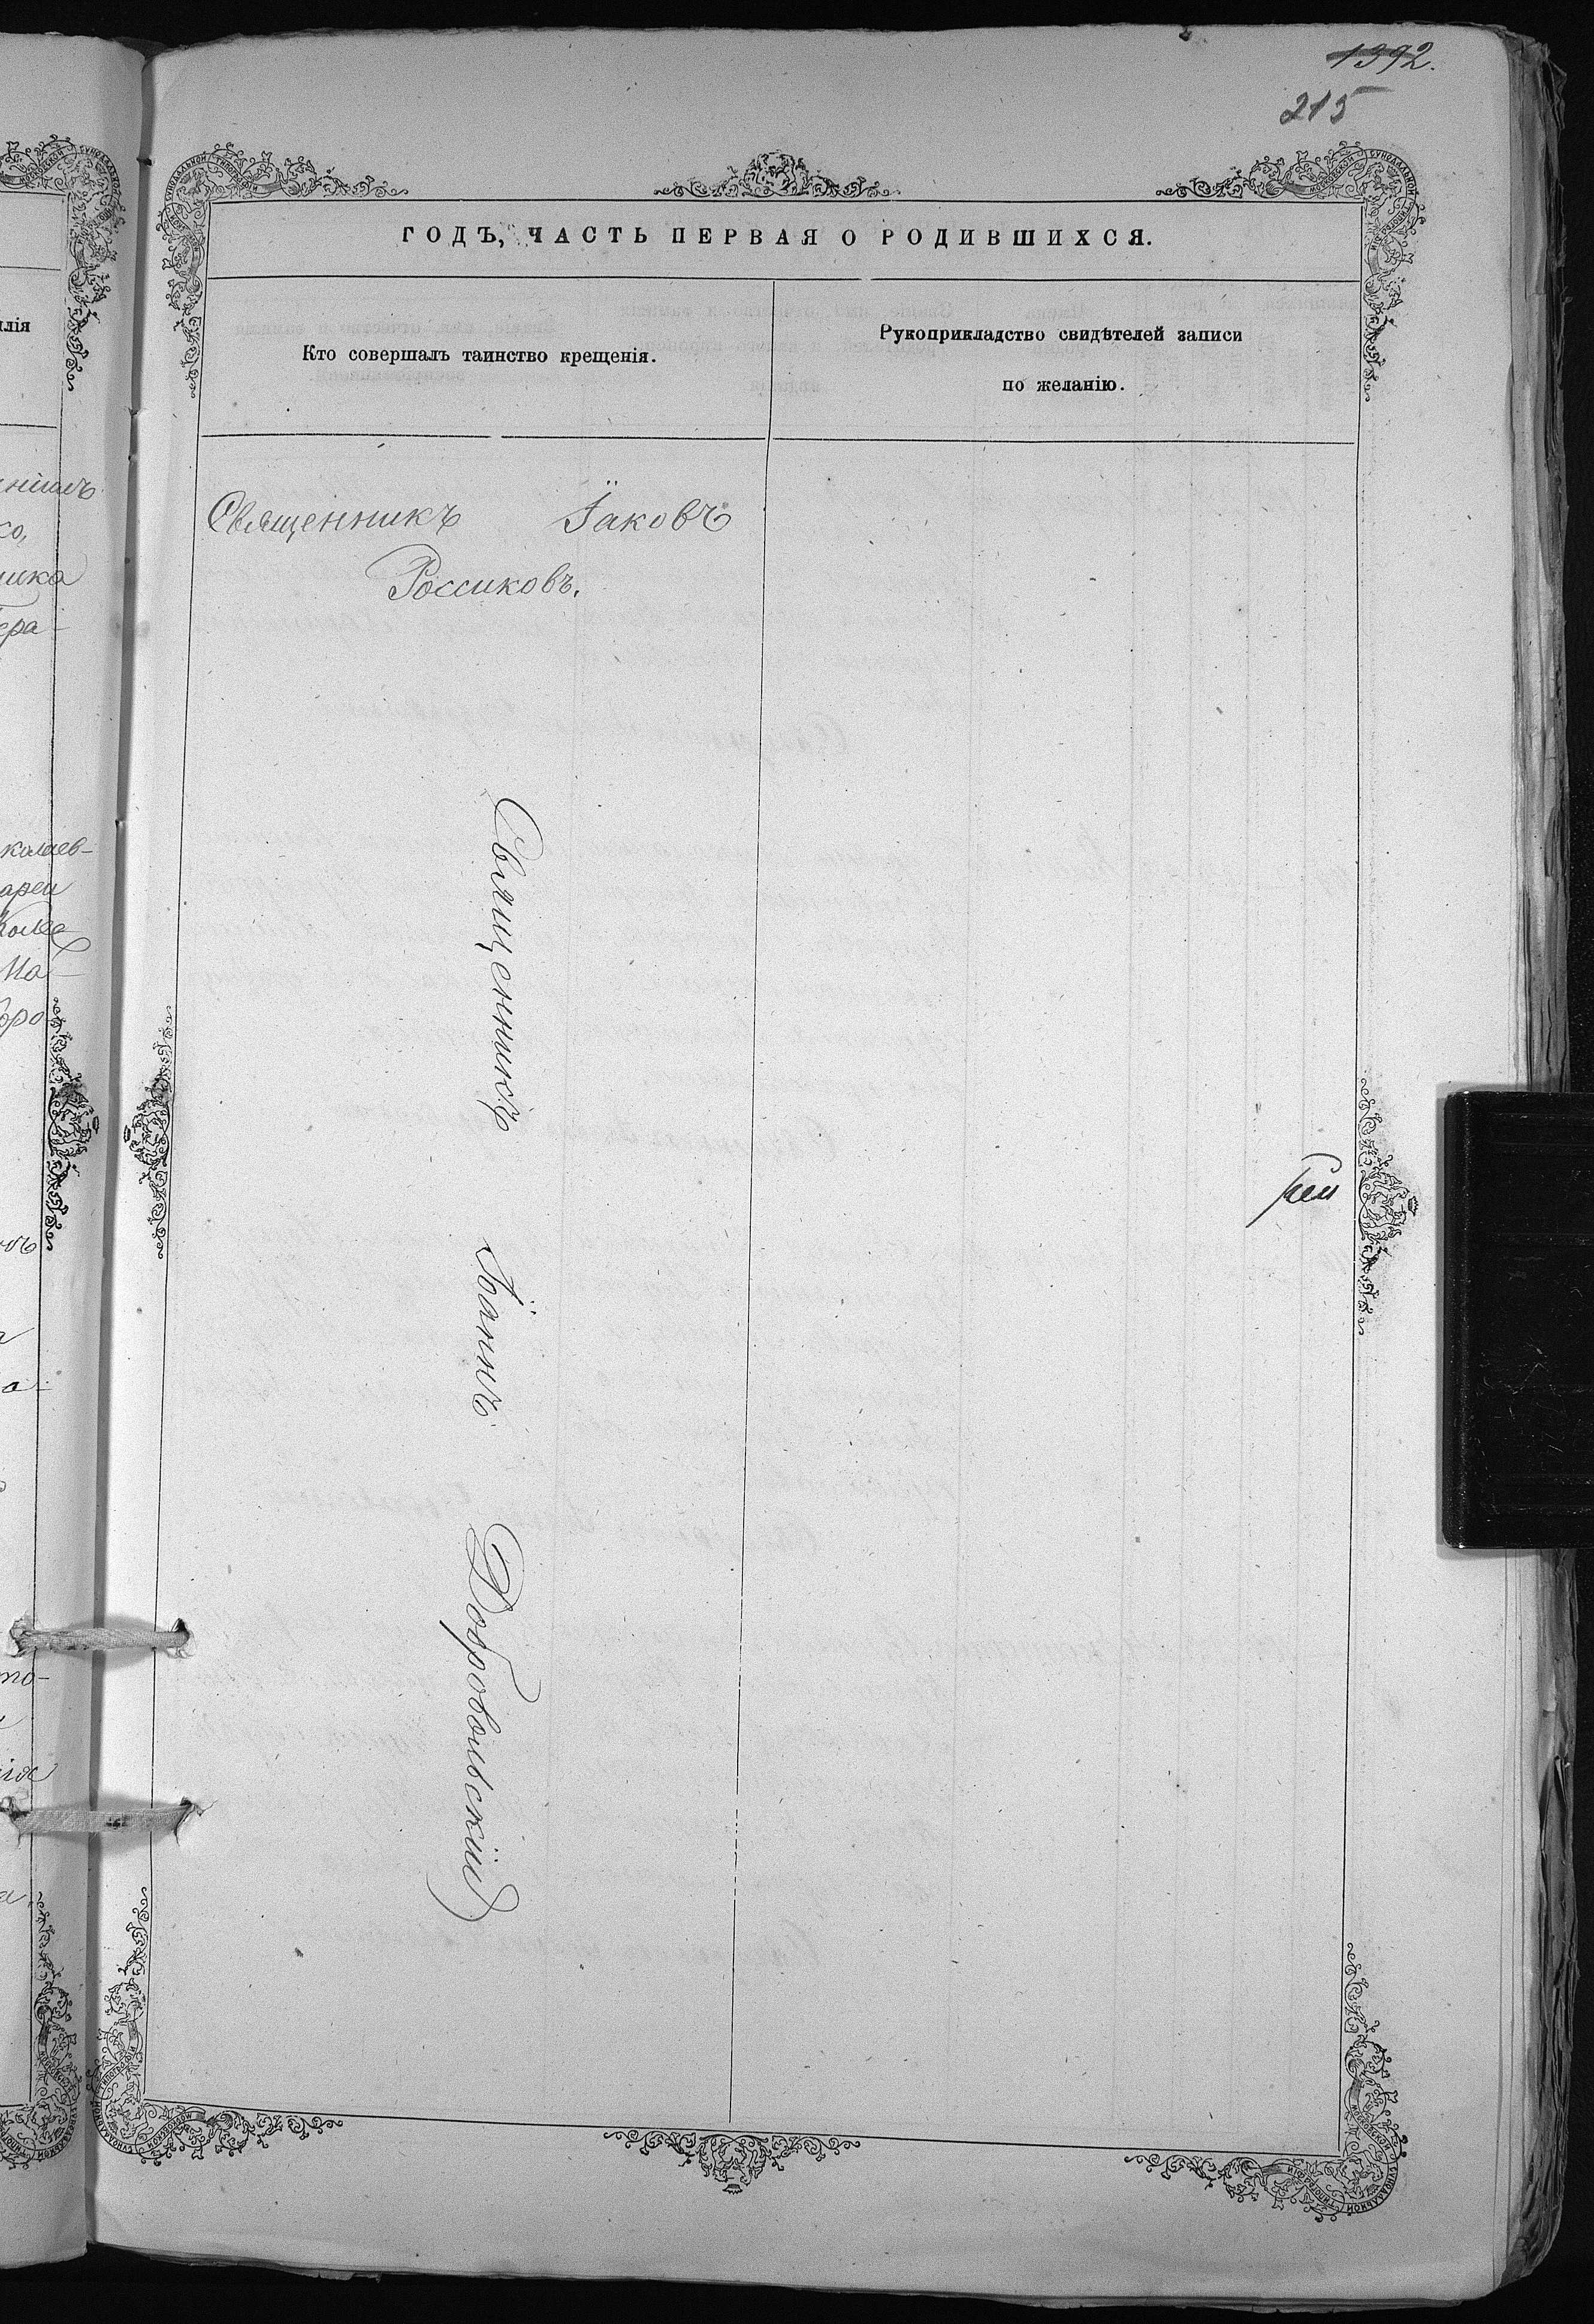 1392.
215
ГОДЪ, ЧАСТЬ ПЕРВАЯ О РОДИВШИХСЯ.
Кто совершалъ таинство крещенія.
Рукоприкладство свидѣтелей записи
по желанію.
Священникъ Іаковъ
Россиковъ.
Священникъ Іоаннъ Добровольскій
лія
ко,
ника
колаев-